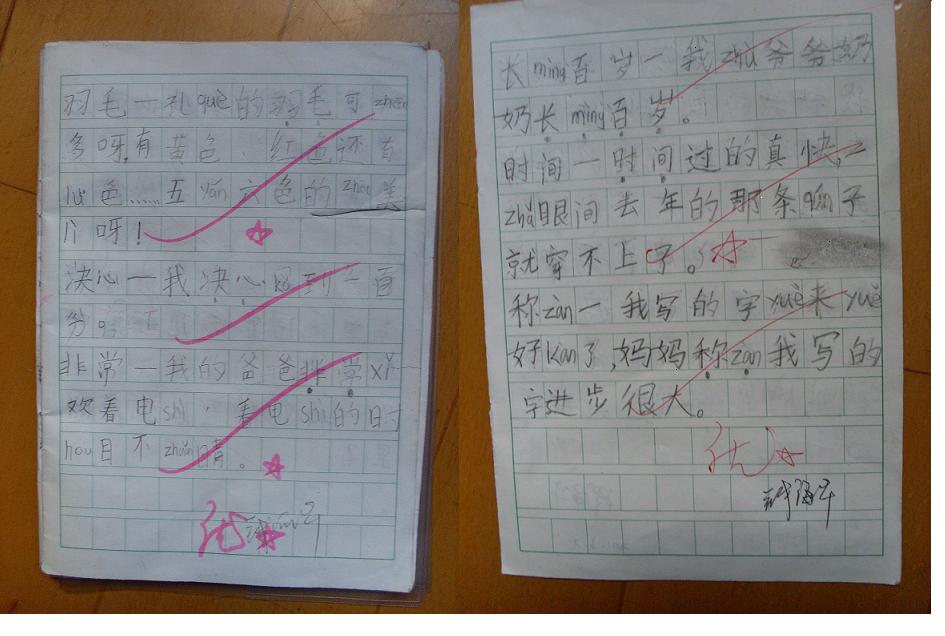 羽毛一孔què的羽毛可zhēn
多呀,有黄色、红色还有
lǜ色……五yán六色的zhēn美
丽呀!
决心一我决心回到一百
分。
非常一我的爸爸非常xǐ
欢看电shì,看电shì的时
hou目不zhuǎn睛。
优
长mìng百岁一我zhù爷爷奶
奶长mìng百岁。
时间一时间过的真快,一
zhǎ眼间去年的那条qún子
就穿不上了。
称zàn一我写的字yuè来yuè
好kàn了,妈妈称zàn我写的
字进步很大。
优